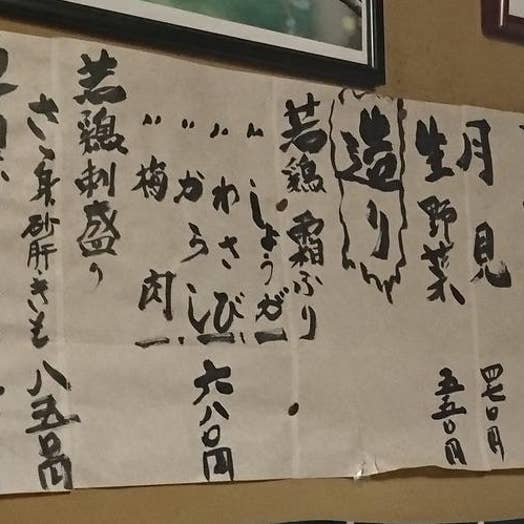 月見 四七〇円
生野菜 五五〇円
造り
若鶏霜ふり
しょうガ
〃 わさび
〃 からし 六八〇円
〃 梅肉
若鶏刺盛り
ささ身砂肝きも 八五〇円